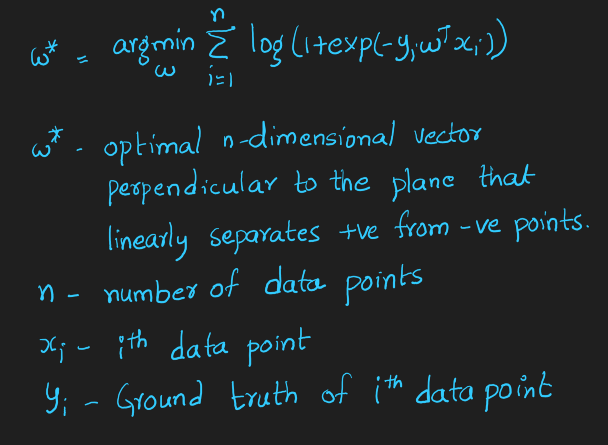 ω* = argmin_ω Σ_{i=1}^{n} log(1+exp(-y_i ω^T x_i))
ω* - optimal n-dimensional vector
perpendicular to the plane that
linearly separates +ve from -ve points.
n - number of data points
x_i - ith data point
y_i - Ground truth of ith data point